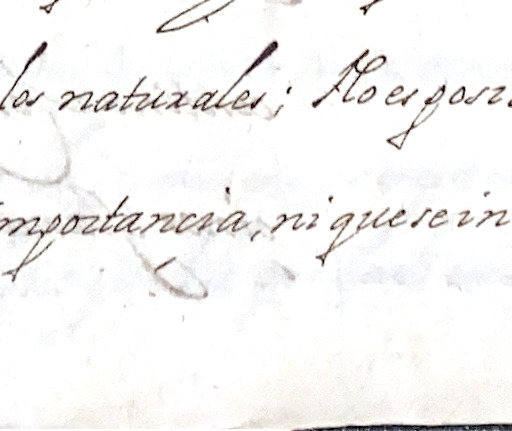 los naturales; No es posi
importancia, ni que se in